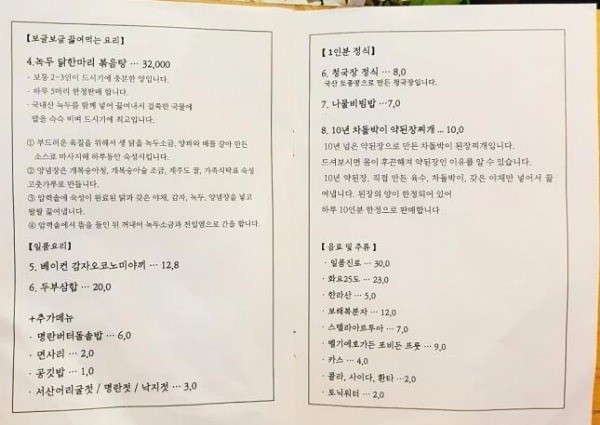 【보글보글 끓여먹는 요리】
4.녹두 닭한마리 볶음탕 … 32,000
- 보통 2~3인이 드시기에 충분한 양입니다.
- 하루 5마리 한정판매 합니다.
- 국내산 녹두를 함께 넣어 끓여내서 걸쭉한 국물에
밥을 슥슥 비벼 드시기에 최고입니다.
① 부드러운 육질을 위해서 생 닭을 녹두소금, 양파와 배를 갈아 만든
소스로 마사지해 하루동안 숙성시킵니다.
② 양념장은 개복숭아청, 개복숭아술 조금, 제주도 꿀, 가족식탁표 숙성
고춧가루로 만듭니다.
③ 압력솥에 숙성이 완료된 닭과 갖은 야채, 감자, 녹두, 양념장을 넣고
팔팔 끓여냅니다.
④ 압력솥에서 뜸을 들인 뒤 꺼내어 녹두소금과 천일염으로 간을 합니다.
【일품요리】
5. 베이컨 감자오코노미야끼 … 12,8
6. 두부삼합 … 20,0
+추가메뉴
- 명란버터돌솥밥 … 6,0
- 면사리 … 2,0
- 공깃밥 … 1,0
- 서산어리굴젓 / 명란젓 / 낙지젓 … 3,0
【1인분 정식】
6. 청국장 정식 … 8,0
국산 토종콩으로 만든 청국장입니다.
7. 나물비빔밥 …7,0
8. 10년 차돌박이 약된장찌개 ... 10,0
10년 넘은 약된장으로 만든 차돌박이 된장찌개입니다.
드셔보시면 몸이 후끈해져 약된장인 이유를 알 수 있습니다.
10년 약된장, 직접 만든 육수, 차돌박이, 갖은 야채만 넣어서 끓
여냅니다. 된장의 양이 한정되어 있어
하루 10인분 한정으로 판매합니다
【음료 및 주류】
· 일품진로 … 30,0
· 화요25도 … 23,0
· 한라산 … 5,0
· 보해복분자 … 12,0
· 스텔라아르투아 … 7,0
· 벨기에호가든 포비든 프룻 … 9,0
· 카스 … 4,0
· 콜라, 사이다, 환타 …2,0
· 토닉워터 … 2,0